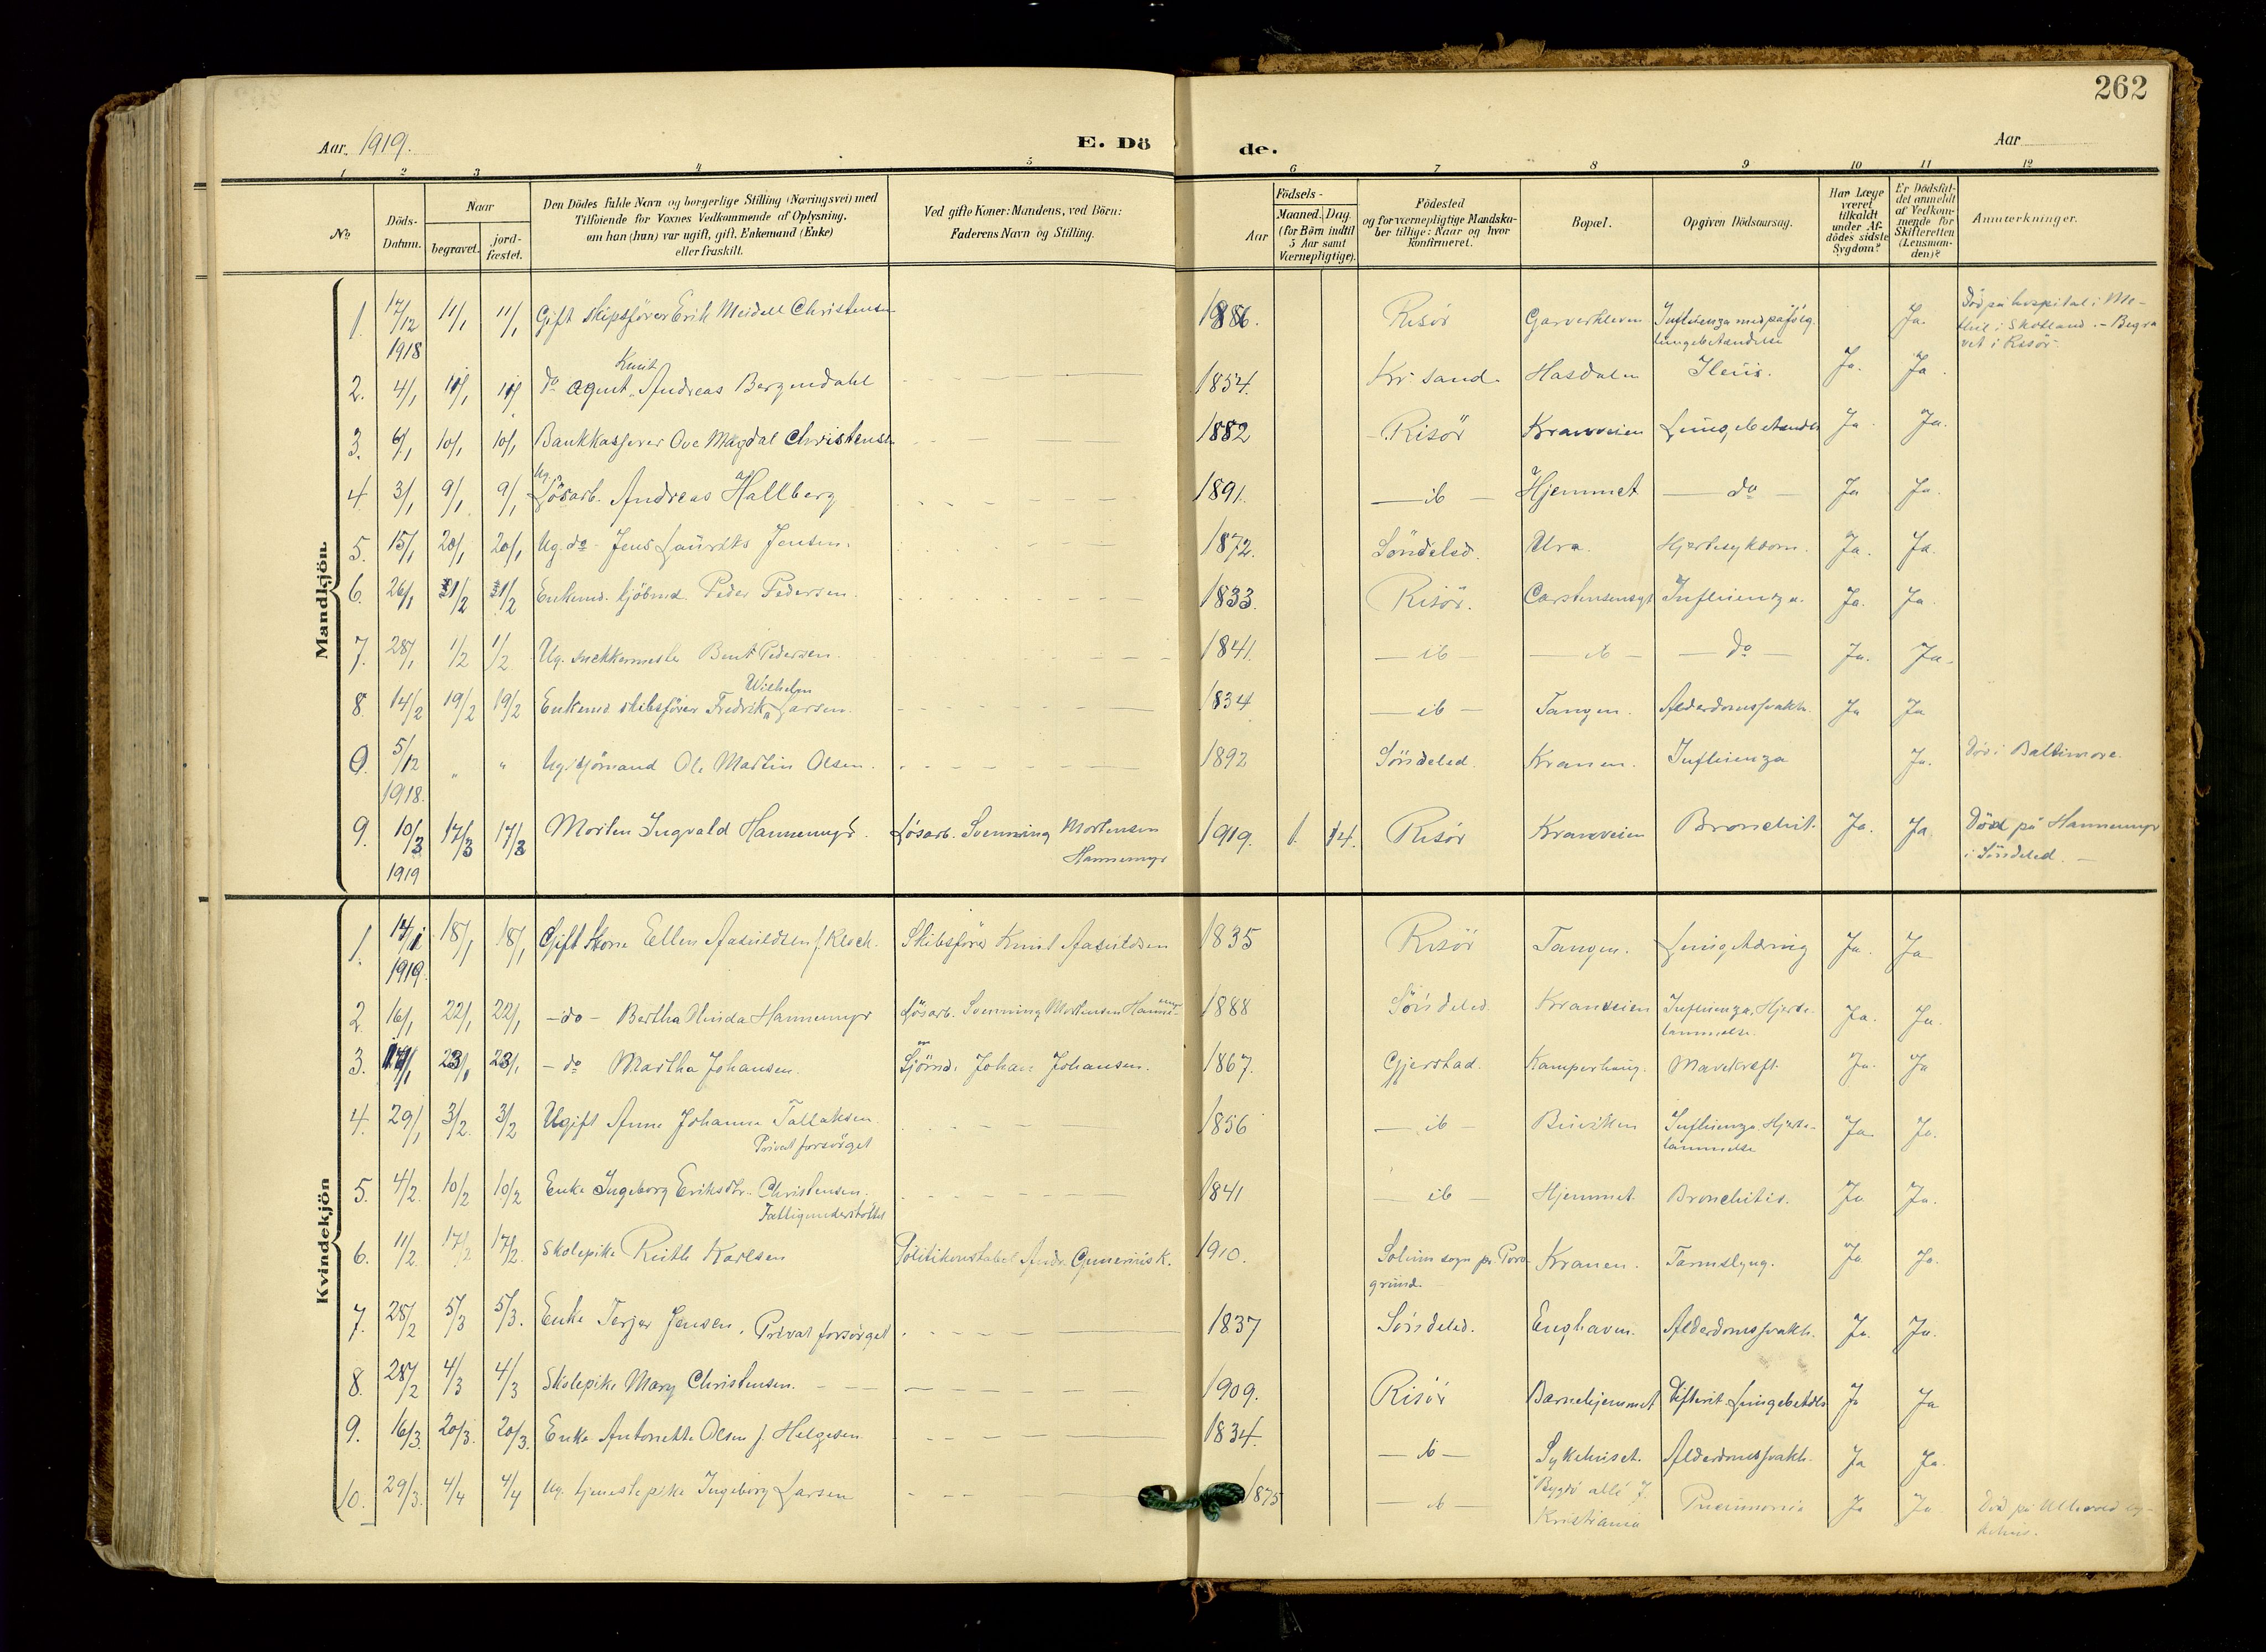 262
Aar 1919.
E. Dö
de.
Aar
1
2
3
4
5
6
7
8
9
10
11
12
No
Döds-
Datum.
Naar
begravet.
jord-
fæstet.
Den Dödes fulde Navn og borgerlige Stilling (Næringsvei) med
Tilföiende for Voxnes Vedkommende af Oplysning,
om han (hun) var ugift, gift, Enkemand (Enke)
eller fraskilt.
Ved gifte Koner: Mandens, ved Börn:
Faderens Navn og Stilling.
Födsels-
Aar
Maaned. Dag.
(for Börn indtil
5 Aar samt
Værnepligtige).
Födested
og for værnepligtige Mandska-
ber tillige: Naar og hvor
konfirmeret.
Bopæl.
Opgiven Dödsaarsag.
Har Læge
været
tilkaldt
under Af-
dödes sidste
Sygdom?
Er Dödsfal-
det anmeldt
af Vedkom-
mende for
Skifteretten
(Lensman-
den)?
Anmærkninger.
Mandkjön.
1. 17/12 1918 11/1 11/1 Gift skipsförer Erik Meidell Christensen 1886. Risör Garverkleven Influenza med påfölg. lungebetændelse Ja. Död på hospital i Me-
thil i Skotland. - Begra
vet i Risör
2. 4/1 11/1 11/1 do agent Knut Andreas Bergendahl 1854. Kr. sand. Hasdalen Ileus. Ja. Ja.
3. 6/1 10/1 10/1 Bankkasserer Ove Magdal Christensen 1882 Risör Kranveien Lungebetændls Ja Ja.
4. 3/1 9/1 9/1 Ug. Lösarb. Andreas Hallberg 1891. - ib - Hjemmet - do - Ja Ja.
5. 15/1 20/1 20/1 Ug. do - Jens Laurits Jensen. 1872. Söndeled. Urva. Hjertesykdom. Ja. Ja.
6. 26/1 1/2 1/2 Enkemd. kjöbmd. Peder Pedersen. 1833. Risör. Carstensensgt Influenza. Ja. Ja.
7. 28/1 1/2 1/2 Ug. snekkermester Bent Pedersen. 1841. - ib - - ib - - do - Ja. Ja.
8. 14/2 19/2 19/2 Enkemd. skibsförer Fredrik Wilhelm Larsen. 1834 - ib - Tangen. Alderdomssvakh. Ja Ja
9. 5/12 1918. " " Ug. sjömand Ole Martin Olsen. 1892 Söndeled. Kranen. Influenza Ja. Död i Baltimore.
9. 10/3 1919 17/3 17/3 Morten Ingvald Hannemyr. Lösarb. Svenning Mortensen
Hannemyr 1919. 1. 14. Risör Kranveien Bronchit. Ja. Ja. Död på Hannemyr
i Söndeled. -
Kvindekjön
1. 14/1 1919. 18/1 18/1 Gift Kone Ellen Aasuldsen f. Kloch. Skibsförer Knut Aasuldsen 1835 Risör Tangen. Lungetæring Ja. Ja
2. 16/1 22/1 22/1 - do - Bertha Olinda Hannemyr Lösarb. Svenning Mortensen Hannemyr 1888 Söndeled. Kranveien Influenza, Hjerte-
lammelse. Ja. Ja.
3. 17/1 23/1 23/1 - do Martha Johansen. Sjömd. Johan Johansen. 1867. Gjerstad. Kamperhaug. Mavekræft. Ja. Ja
4. 29/1 3/2 3/2 Ugift Anne Johanne Tallaksen.
Privat forsörget 1856 - ib - Buvikken Influenza. Hjerte-
lammelse Ja. Ja.
5. 4/2. 10/2 10/2 Enke Ingeborg Eriksdtr. Christensen.
Fattigunderstöttet 1841 - ib - Hjemmet. Bronchitis. Ja Ja.
6. 11/2. 17/2 17/2. Skolepike Ruth Karlsen Politikonstabel Andr. Gunerius K. 1910. Solum sogn pr. Pors-
grund. Kranen. Tarmslyng. Ja Ja.
7. 28/2 5/3 5/3. Enke Terjer Jensen, Privat forsörget 1837 Söndeled. Enghaven. Alderdomssvakh. Ja. Ja.
8. 28/2 4/3 4/3 Skolepike Mary Christensen. 1909. Risör Barnehjemmet Difterit. Lungebetdls Ja Ja
9. 16/3. 20/3. 20/3. Enke Antonette Olsen f. Helgesen 1834. - ib - Sykehuset. Alderdomssvakh. Ja Ja.
10. 29/3. 4/4 4/4 Ug. tjenestepike Ingeborg Larsen 1875 - ib - Bygdö allé 7.
Kristiania Pneumonia Ja Ja Död på Ullevold sy-
kehus.